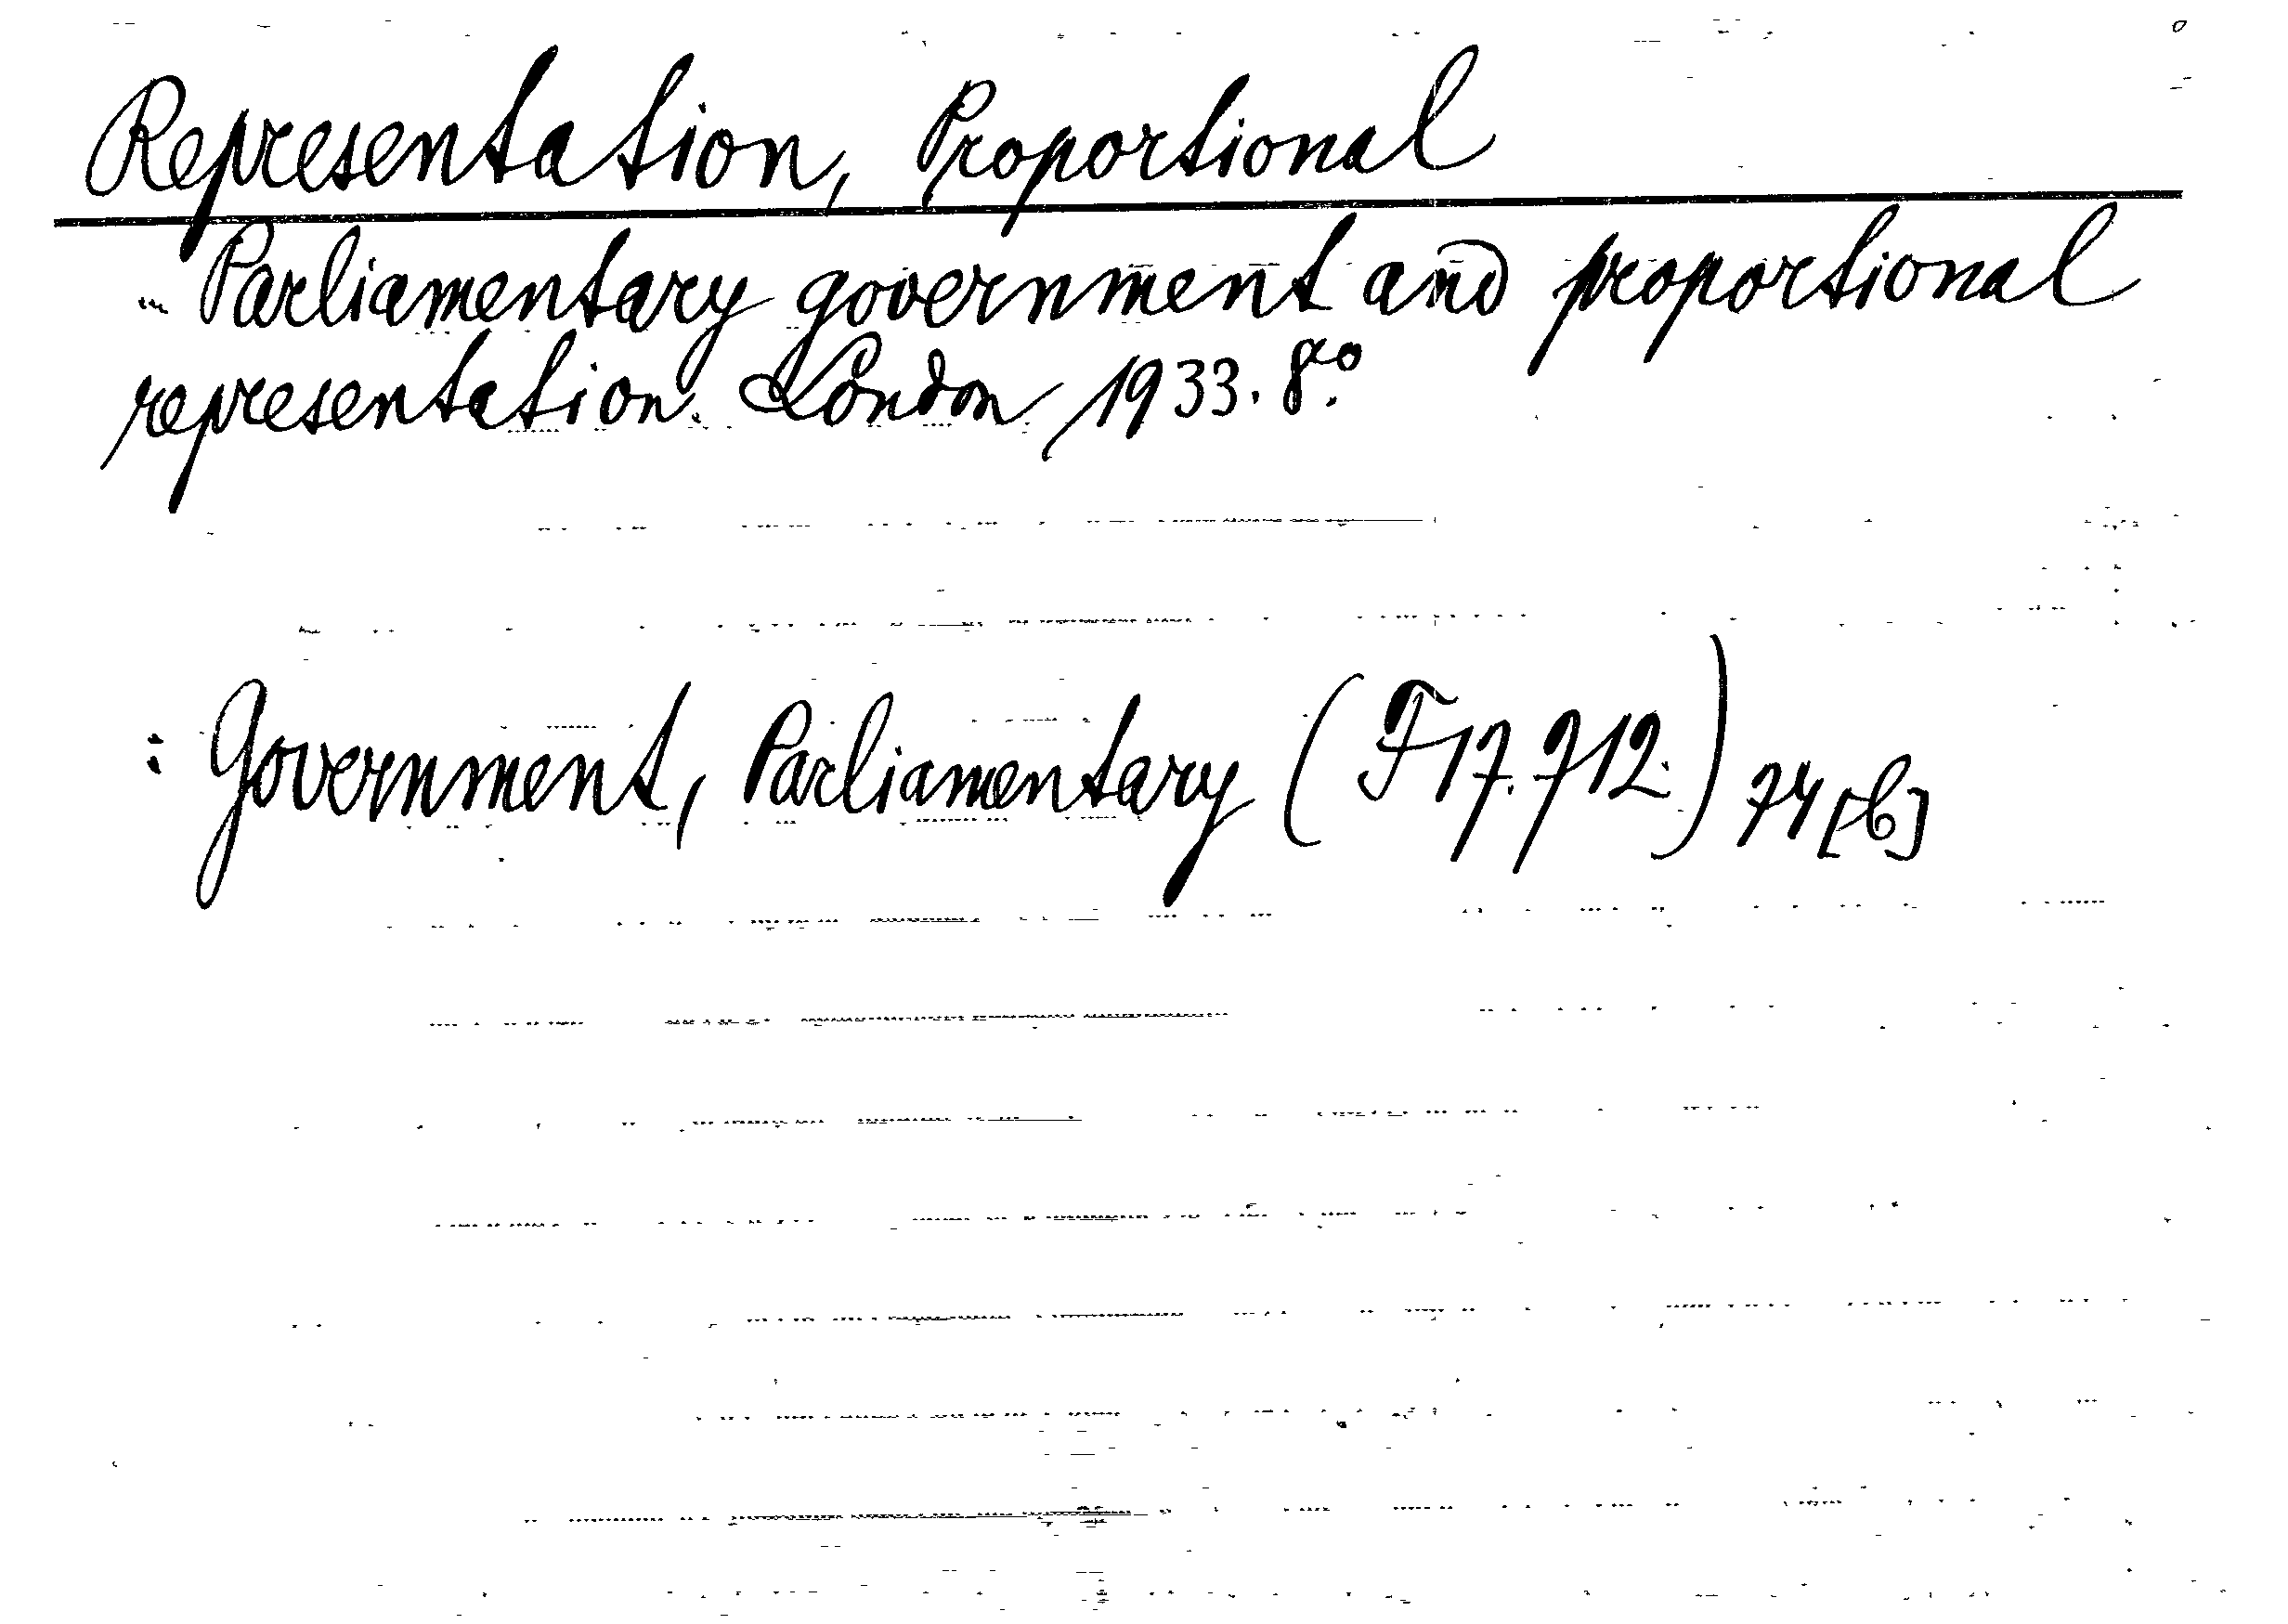 Representation, Proportional
Parliamentary government and proportional
representation. London, 1933. 8°.
: Government, Parliamentary (F17.712.) 74[b]